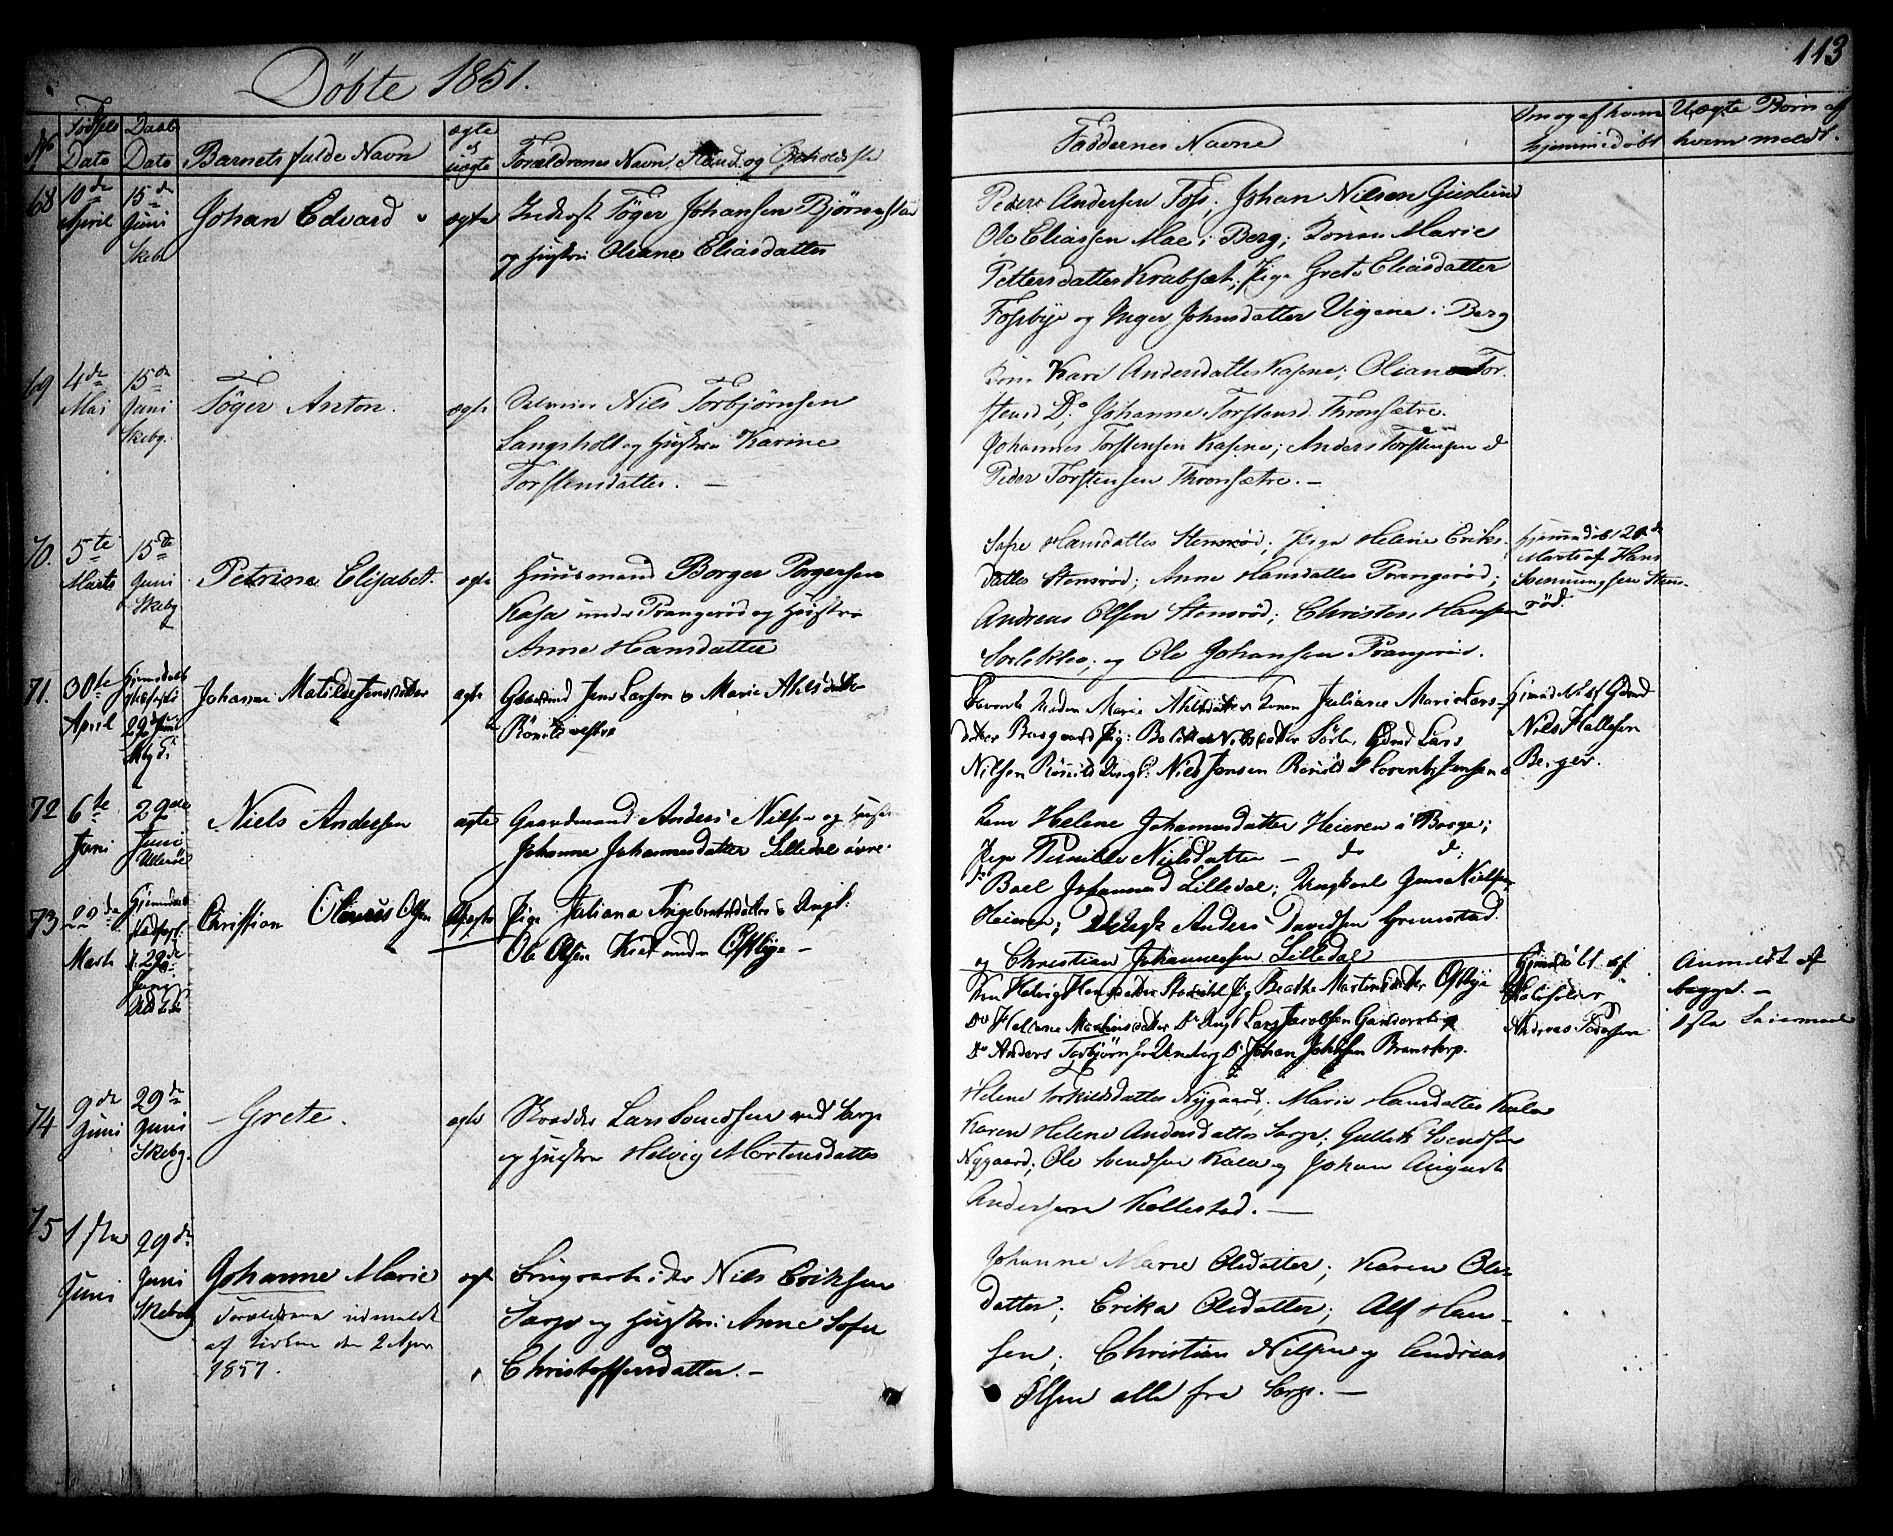 Döbte 1851.
113
No
Födsels Dato
Daabs Dato
Barnets fulde Navn
ægte og uægte
Forældrenes Navn, Stand og Opholdsste
Faddernes Navne
Om og af hvem hjemmedøbt
Uægte Börn af hvem meldt.
68
10de April
15de Juni Skeb.
Johan Edvard
ægte
Inderst Töger Johansen Björnestad
og Hustru Oliane Eliasdatter
Peder Andersen Foss; Johan Nilsen Guslund
Ole Eliassen Mae i Berg; Konen Marie
Pettersdatter Krabsæt; Pige Grete Eliasdatter
Fossbye og Inger Johnsdatter Vigene i Berg
69
4de Mai
15de Juni Skebg.
Töger Anton.
ægte
Nils Torbjörnsen
Langsholt og Hustru Karine
Torstensdatter. —
Kone Kari Andersdatter Kasene; Oliane Tor-
stensd Do; Johanne Torstensd. Thronsætre.
Johannes Torstensen Kasene; Anders Torstensen d
Peder Torstensen Thronsætre. —
70.
5te Marts
15de Juni Skebg
Petrine Elisabet.
ægte
Huusmand Borger Borgersen
Kasa under Prangeröd og Hustru
Anne Hansdatter
Sofie Hansdatter Stensröd; Pige Helene Eriks-
datter Stensröd; Anne Hansdatter Prangeröd;
Andreas Olsen Stensröd; Christen Hansen
Sorlekleo; og Ole Johansen Prangeröd.
hjemmedöbt 20de
Marts af Hans
Svenningsen Sten-
röd.
71.
30te April
Hjemmedöbt 29de Juni
Johanne Matilde Jensdatter
ægte
Gaardmd Jens Larsen & Marie Ahlsdatter
Rönild vestre
Marie Ahlsdatter Konen Juliane Marie Lars-
datter Basgaard Pig: Nilsdatter Sörbr Gdmd Lars
Nilsen Rönild Ungk: Nils Jensen Rönild & Lorents Jensen
Hjemdöbt af Gdmd
Nils Hallesen
Berger.
72
6te Juni
29de Juni Ulleröe
Niels Andersen
ægte
Gaardmand Anders Nilsen og Hustru
Johanne Johannesdatter Lilledal övre.
Kone Helene Johannesdatter Heieren i Borge;
Pige Pernille Nielsdatter — do do;
Do Boel Johannesd Lilledal; Ungkarl Jens Nielsen
Heieren; Anders Davidsen Grimstad
og Christian Johannessen Lilledal
73
22de Marts
Hjemmedöbt 29de Juni
Christian Olaus Olsen
Uægte
Pige Juliana Ingebretsdatter & Ungk:
Ole Olsen Krok under Ostbye —
Kon Helvig Hansdatter Pig Beathe Martinsdatter Ostbye
Do Hellene Martinsdatter Do Ungk Lars Jacobsen
Do Anders Torbjörnsen Do Johan Johnsen Bramstorp.
Hjemdöbt af
Andreas Pedersen
Anmeldt af
begge. —
1ste Leiermaal
74
9de Juni
29de Juni Skebg.
Grete.
ægte
Skrædder Lars Svendsen ved Sarp
og Hustru Helvig Mortensdatter
Helene Torkildsdatter Nygaard; Marie Hansdatter Kala
Karen Helene Andersdatter Sarp; Gullik Svendsen
Nygaard; Ole Svendsen Kala og Johan August
Andersen Kallestad. —
75
1ste Juni
29de Juni Skebg
Johanne Marie
Forældrene udmeldt
af Kirken den 2 Apr
1857.
ægte
Brugsarbeider Nils Eriksen
Sarp og Hustru Anne Sofie
Christoffersdatter. —
Johanne Marie Olsdatter; Karen Ols-
datter; Erika Olsdatter; Alf Han-
sen; Christian Nilsen og Andreas
Olsen alle fra Sarp. —